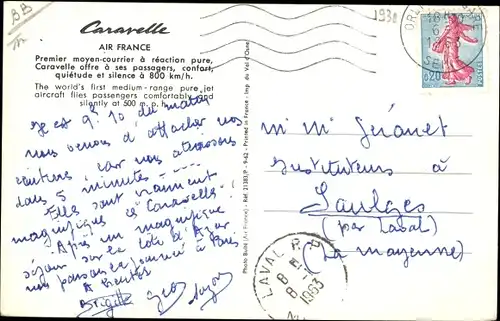 BB
1938
Caravelle
AIR FRANCE
Premier moyen-courrier à réaction pure,
Caravelle offre à ses passagers, confort,
quiétude et silence à 800 km/h.
The world's first medium-range pure jet
aircraft flies passengers comfortably and
silently at 500 m. p. h.
Il est 9h 10 du matin
nous venons d'attacher nos
ceintures, car nous atterrissons
dans 5 minutes
Elles sont vraiment
magnifiques ces "Caravelles"
Après un magnifique
séjour sur la Côte d'Azur
nous passons la journée à Paris
A bientôt
Brigitte
Photo Buihi (Air France) - Réf. 21383/P - 9-62 - Printed in France - Imp. du Val d'Osne
POSTES
0,20
M. Mme
Instituteurs à
Saulges
(par Laval)
(La Mayenne)
LAVAL R.P.
8-8
1963